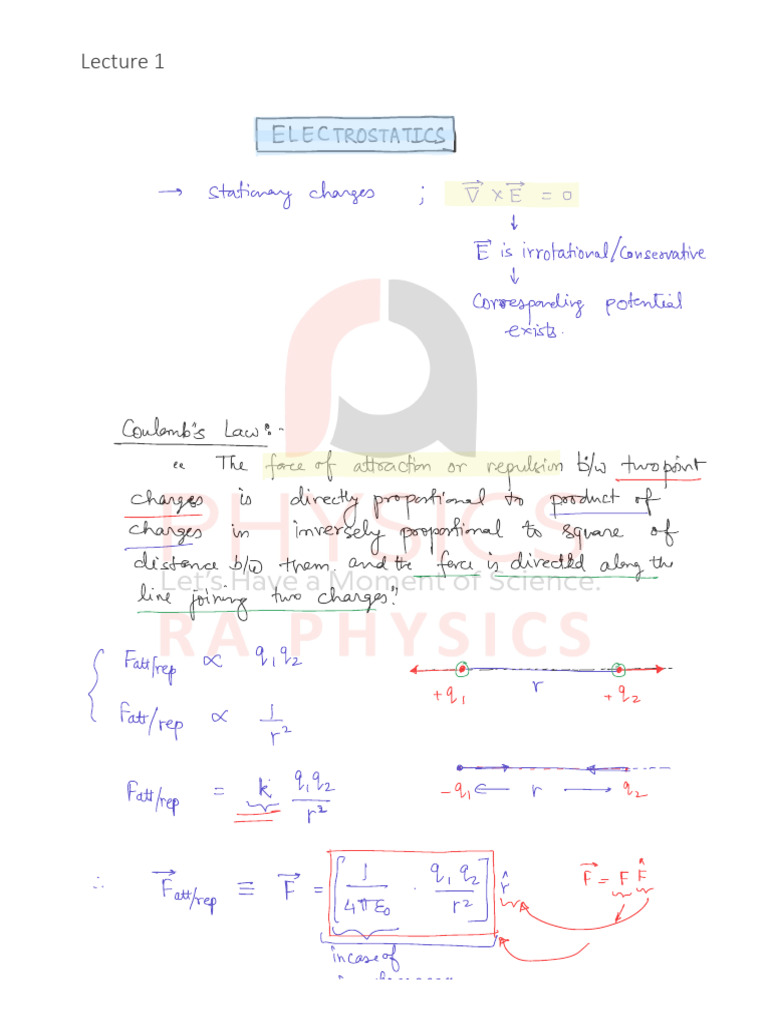 Lecture 1
ELECTROSTATICS
→ Stationary charges ; ∇⃗ × E⃗ = 0
↓
E⃗ is irrotational/conservative
↓
Corresponding potential
exists.
Coulomb's Law:-
" The force of attraction or repulsion b/w two point
charges is directly proportional to product of
charges in inversely proportional to square of
distance b/w them and the force is directed along the
line joining two charges."
PHYSICS
Let's Have a Moment of Science.
RA PHYSICS
F att/rep ∝ q₁q₂
+q₁ r +q₂
F att/rep ∝ 1/r²
F att/rep = k q₁q₂/r²
-q₁ ← r → q₂
∴ F⃗ att/rep ≡ F⃗ = [1/4πε₀ · q₁q₂/r²] r̂
F⃗ = F F̂
in case of